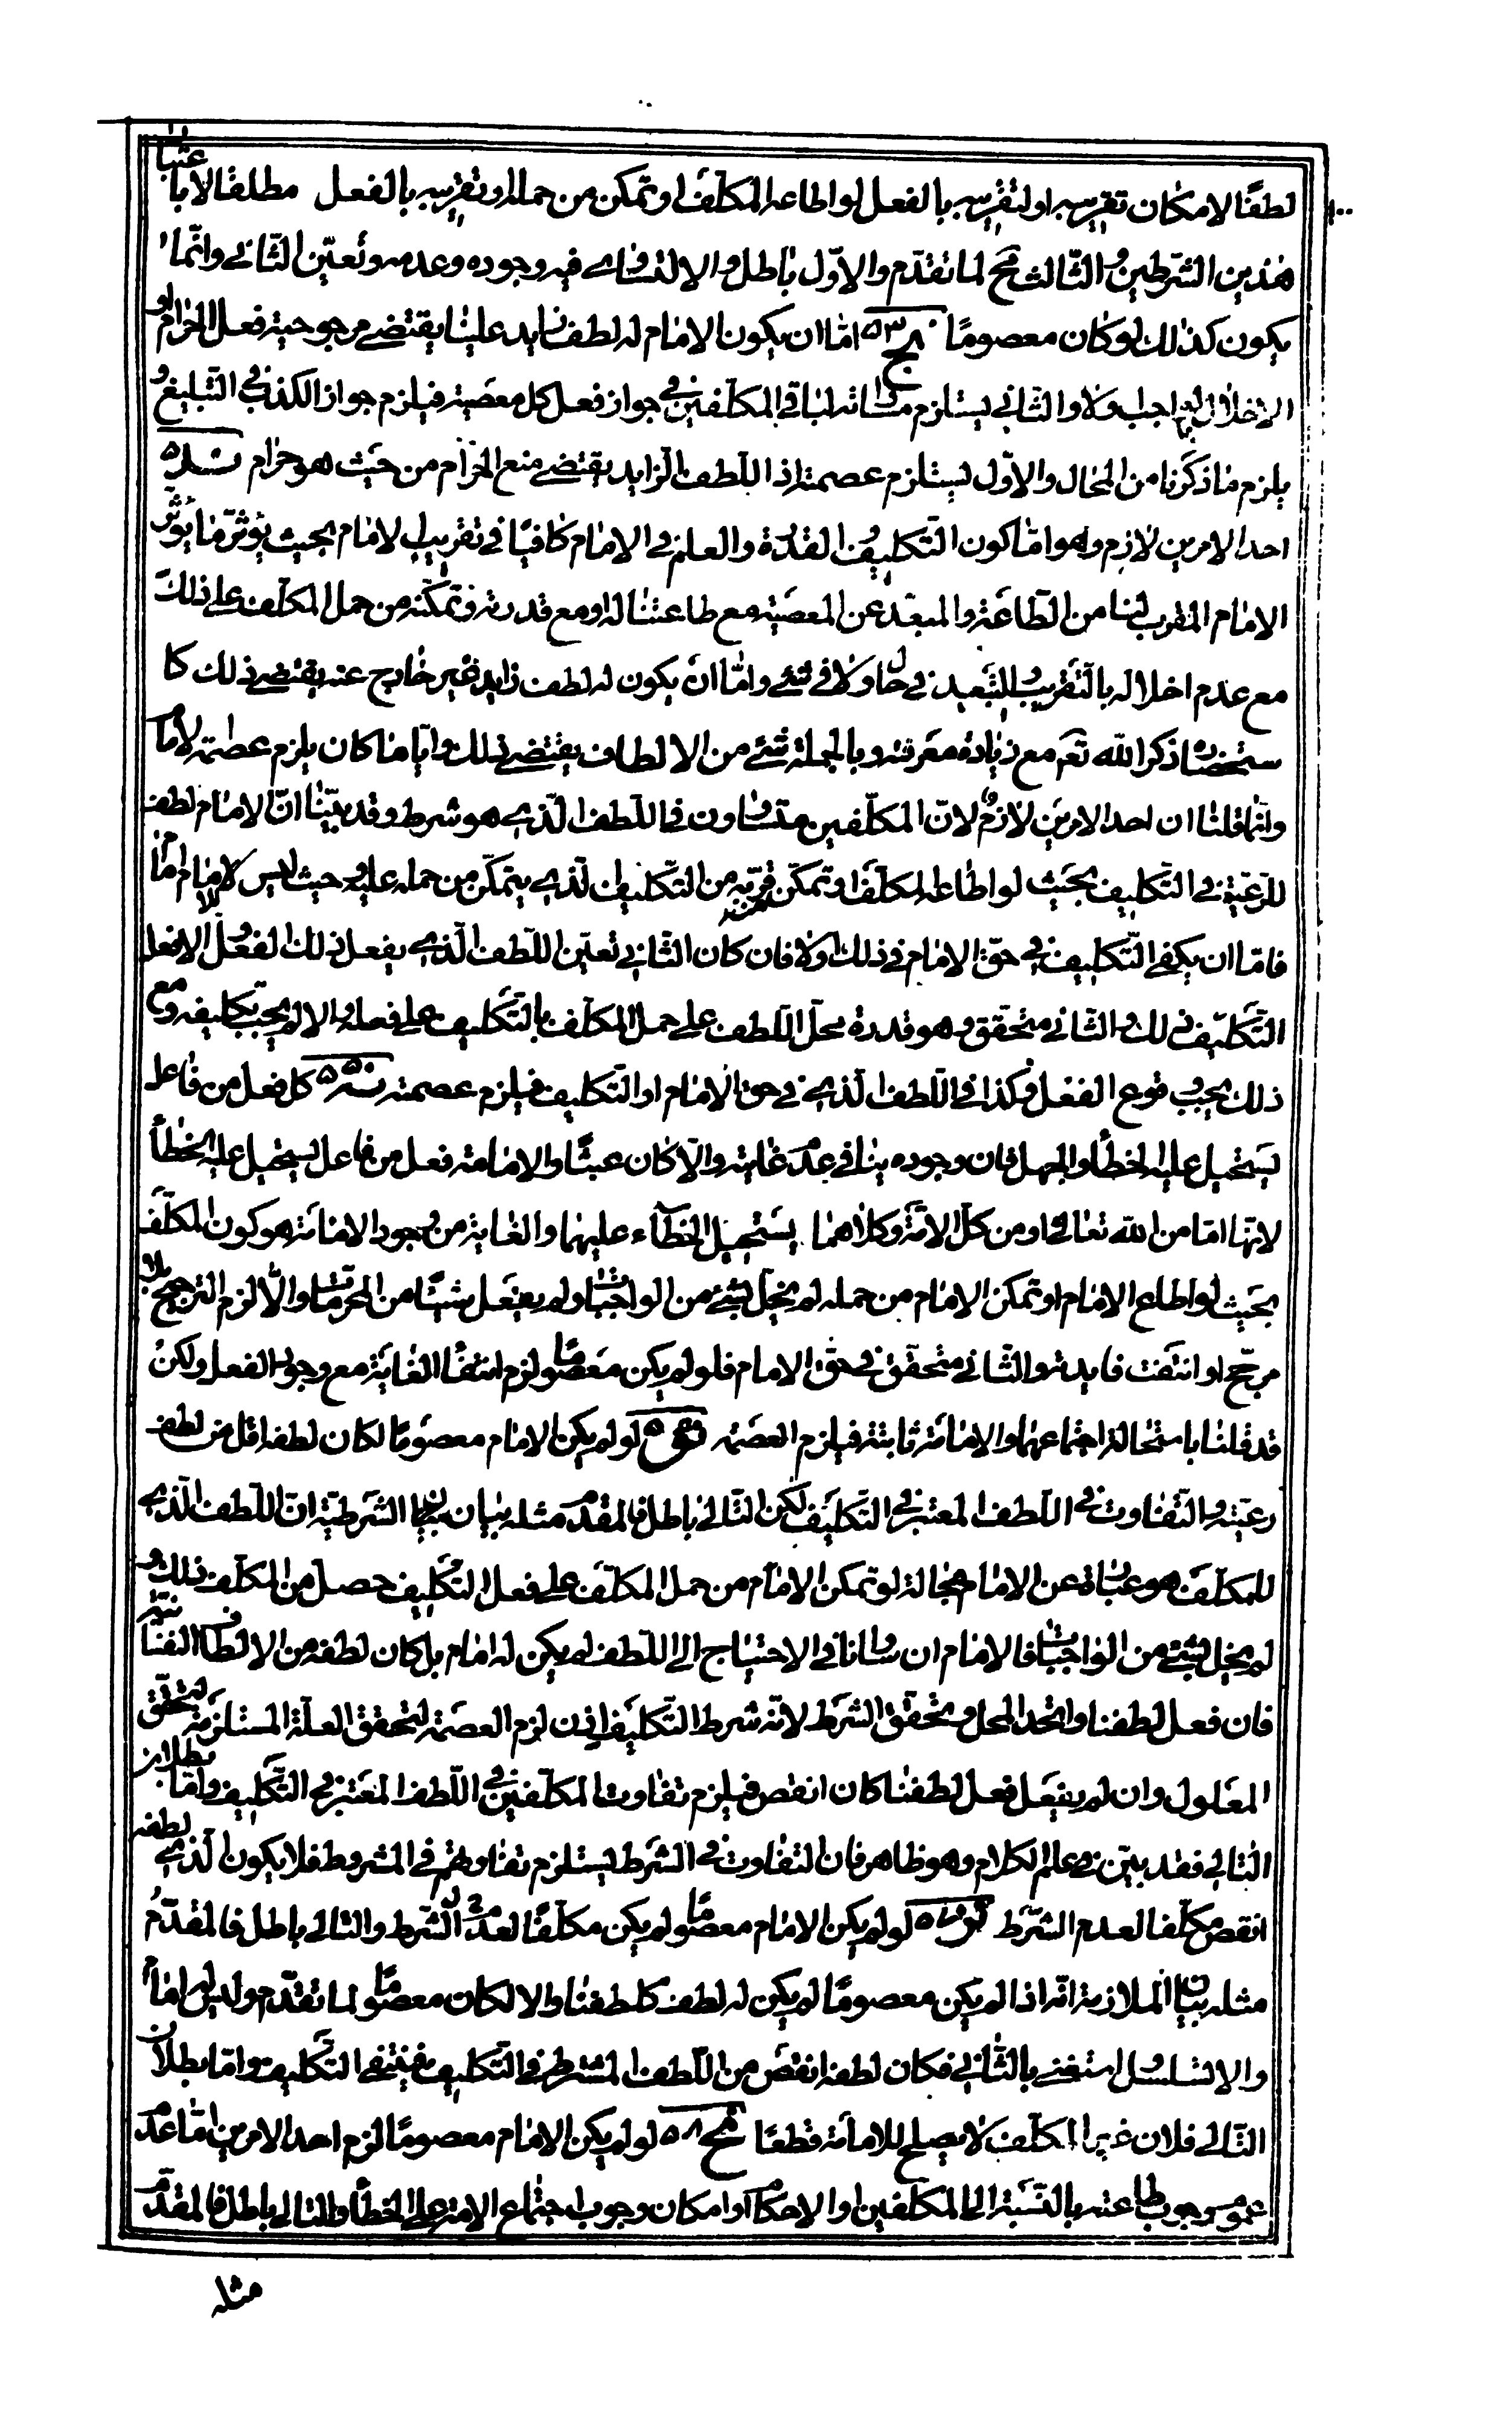 لطفًا لامكان تقريبه او لتقريبه بالفعل لو اطاعه المكلّف او تمكن من حمله او تقريبه بالفعل مطلقا لا باعتبار
هذين الشرطين والثالث مح لما تقدّم والاوّل باطل والا لتساوى فيه وجوده وعدمه وتعيّن الثانى وانّما
يكون كذلك لو كان معصومًا نج ٥٣ امّا ان يكون الامام له لطف زايد علينا يقتضى مرجوحية فعل الحرام او
الاخلال بالواجب اولا والثانى يستلزم مساواته لباقى المكلّفين فى جواز فعل كل معصية فيلزم جواز الكذب فى التبليغ و
يلزم ما ذكرنا من المحال والاوّل يستلزم عصمته اذ اللطف الزايد يقتضى منع الحرام من حيث هو حرام ند ٥٤
احد الامرين لازم وهو امّا كون التكليف والقدرة والعلم فى الامام كافيًا فى تقريب الامام بحيث يؤثر ما يؤثر
الامام المقرب لنا من الطاعة والمبعّد عن المعصية مع طاعتنا له او مع قدرته وتمكّنه من حمل المكلّف على ذلك
مع عدم اخلاله بالتقريب والتبعيد فى حال ولا فى شئ وامّا ان يكون له لطف زايد غير خارج عنه يقتضى ذلك كا
ستحضار ذكر الله تعم مع زيادة معرفته وبالجملة شئ من الالطاف يقتضى ذلك وايّاما كان يلزم عصمة الامام
وانّما قلنا ان احد الامرين لازم لانّ المكلّفين متساوون فى اللطف الّذى هو شرط وقد بيّنّا انّ الامام لطف
للرّعيّة فى التكليف بحيث لو اطاعه المكلّف او تمكّن قربه من التكليف الّذى يتمكّن من حمله عليه وحيث ليس للامام امام
فامّا ان يكفى التكليف فى حقّ الامام فى ذلك اولا فان كان الثانى تعيّن اللطف الّذى يفعل ذلك الفعل والا لفعل
التكليف ذلك والثانى متحقق وهو قدرة محلّ اللطف على حمل المكلّف بالتكليف على فعله والا لم يجب تكليفه ومع
ذلك يجب وقوع الفعل فكذا فى اللطف الّذى فى حق الامام او التكليف فيلزم عصمته نه ٥٥ كل فعل من فاعل
يستحيل عليه الخطأ والجهل فان وجوده ينافى عدم غايته والّا كان عبثًا والامامة فعل من فاعل يستحيل عليه الخطأ
لانّها امّا من الله تعالى او من كلّ الامّة وكلاهما يستحيل الخطاء عليهما والغاية من وجود الامامة هو كون المكلّف
بحيث لو اطاع الامام او تمكّن الامام من حمله لم يخلّ بشئ من الواجبات ولم يفعل شيئًا من المحرمات والّا لزم الترجيح بلا
مرجّح او انتفت فايدته والثانى متحقق فى حقّ الامام فلو لم يكن معصومًا لزم انتفاء الغاية مع وجود الفعل ولكن
قد قلنا باستحالة اجتماعهما والامامة ثابتة فيلزم العصمة نو ٥٦ لو لم يكن الامام معصومًا لكان لطفه اقل من لطف
رعيّته والتفاوت فى اللطف المعتبر فى التكليف لكن التالى باطل فالمقدّم مثله بيان الشرطيّة انّ اللطف الّذى
للمكلّف هو عبارة عن الامام بحالة لو تمكن الامام من حمل المكلّف على فعل التكليف حصل من المكلّف ذلك و
لم يخل بشئ من الواجبات فالامام ان ساوانا فى الاحتياج الى اللطف لم يكن له امام بل كان لطفه من الالطاف النفسانية
فان فعل فعل لطفنا واتحد المحل وتحقّق الشرط لانّه شرط التكليف اذن لزم العصمة لتحقق العلّة المستلزمة لتحقق
المعلول وان لم يفعل فعل لطفنا كان انقص فيلزم تفاوت المكلّفين فى اللّطف المعتبر فى التكليف وامّا بطلان
التالى فقد بيّن فى علم الكلام وهو ظاهر فان التفاوت فى الشرط يستلزم تفاوتهم فى المشروط فلا يكون الّذى لطفه
انقص مكلّفا لعدم الشرط نز ٥٧ لو لم يكن الامام معصومًا لم يكن مكلّفًا لعدم الشرط والتالى باطل فالمقدّم
مثله بيان الملازمة انّه اذا لم يكن معصومًا لم يكن له لطف كلطفنا والا لكان معصومًا لما تقدّم وليس له امام
والا تسلسل او استغنى بالثانى فكان لطفه انقص من اللّطف المشترط فى التكليف فينتفى التكليف وامّا بطلان
التالى فلان غير المكلّف لا يصلح للامامة قطعًا نح ٥٨ لو لم يكن الامام معصومًا لزم احد الامرين امّا عدم
عموم وجوب طاعته بالنّسبة الى المكلّفين او الاحكام او امكان وجوب اجتماع الامة على الخطأ والتالى باطل فالمقدّم
مثله